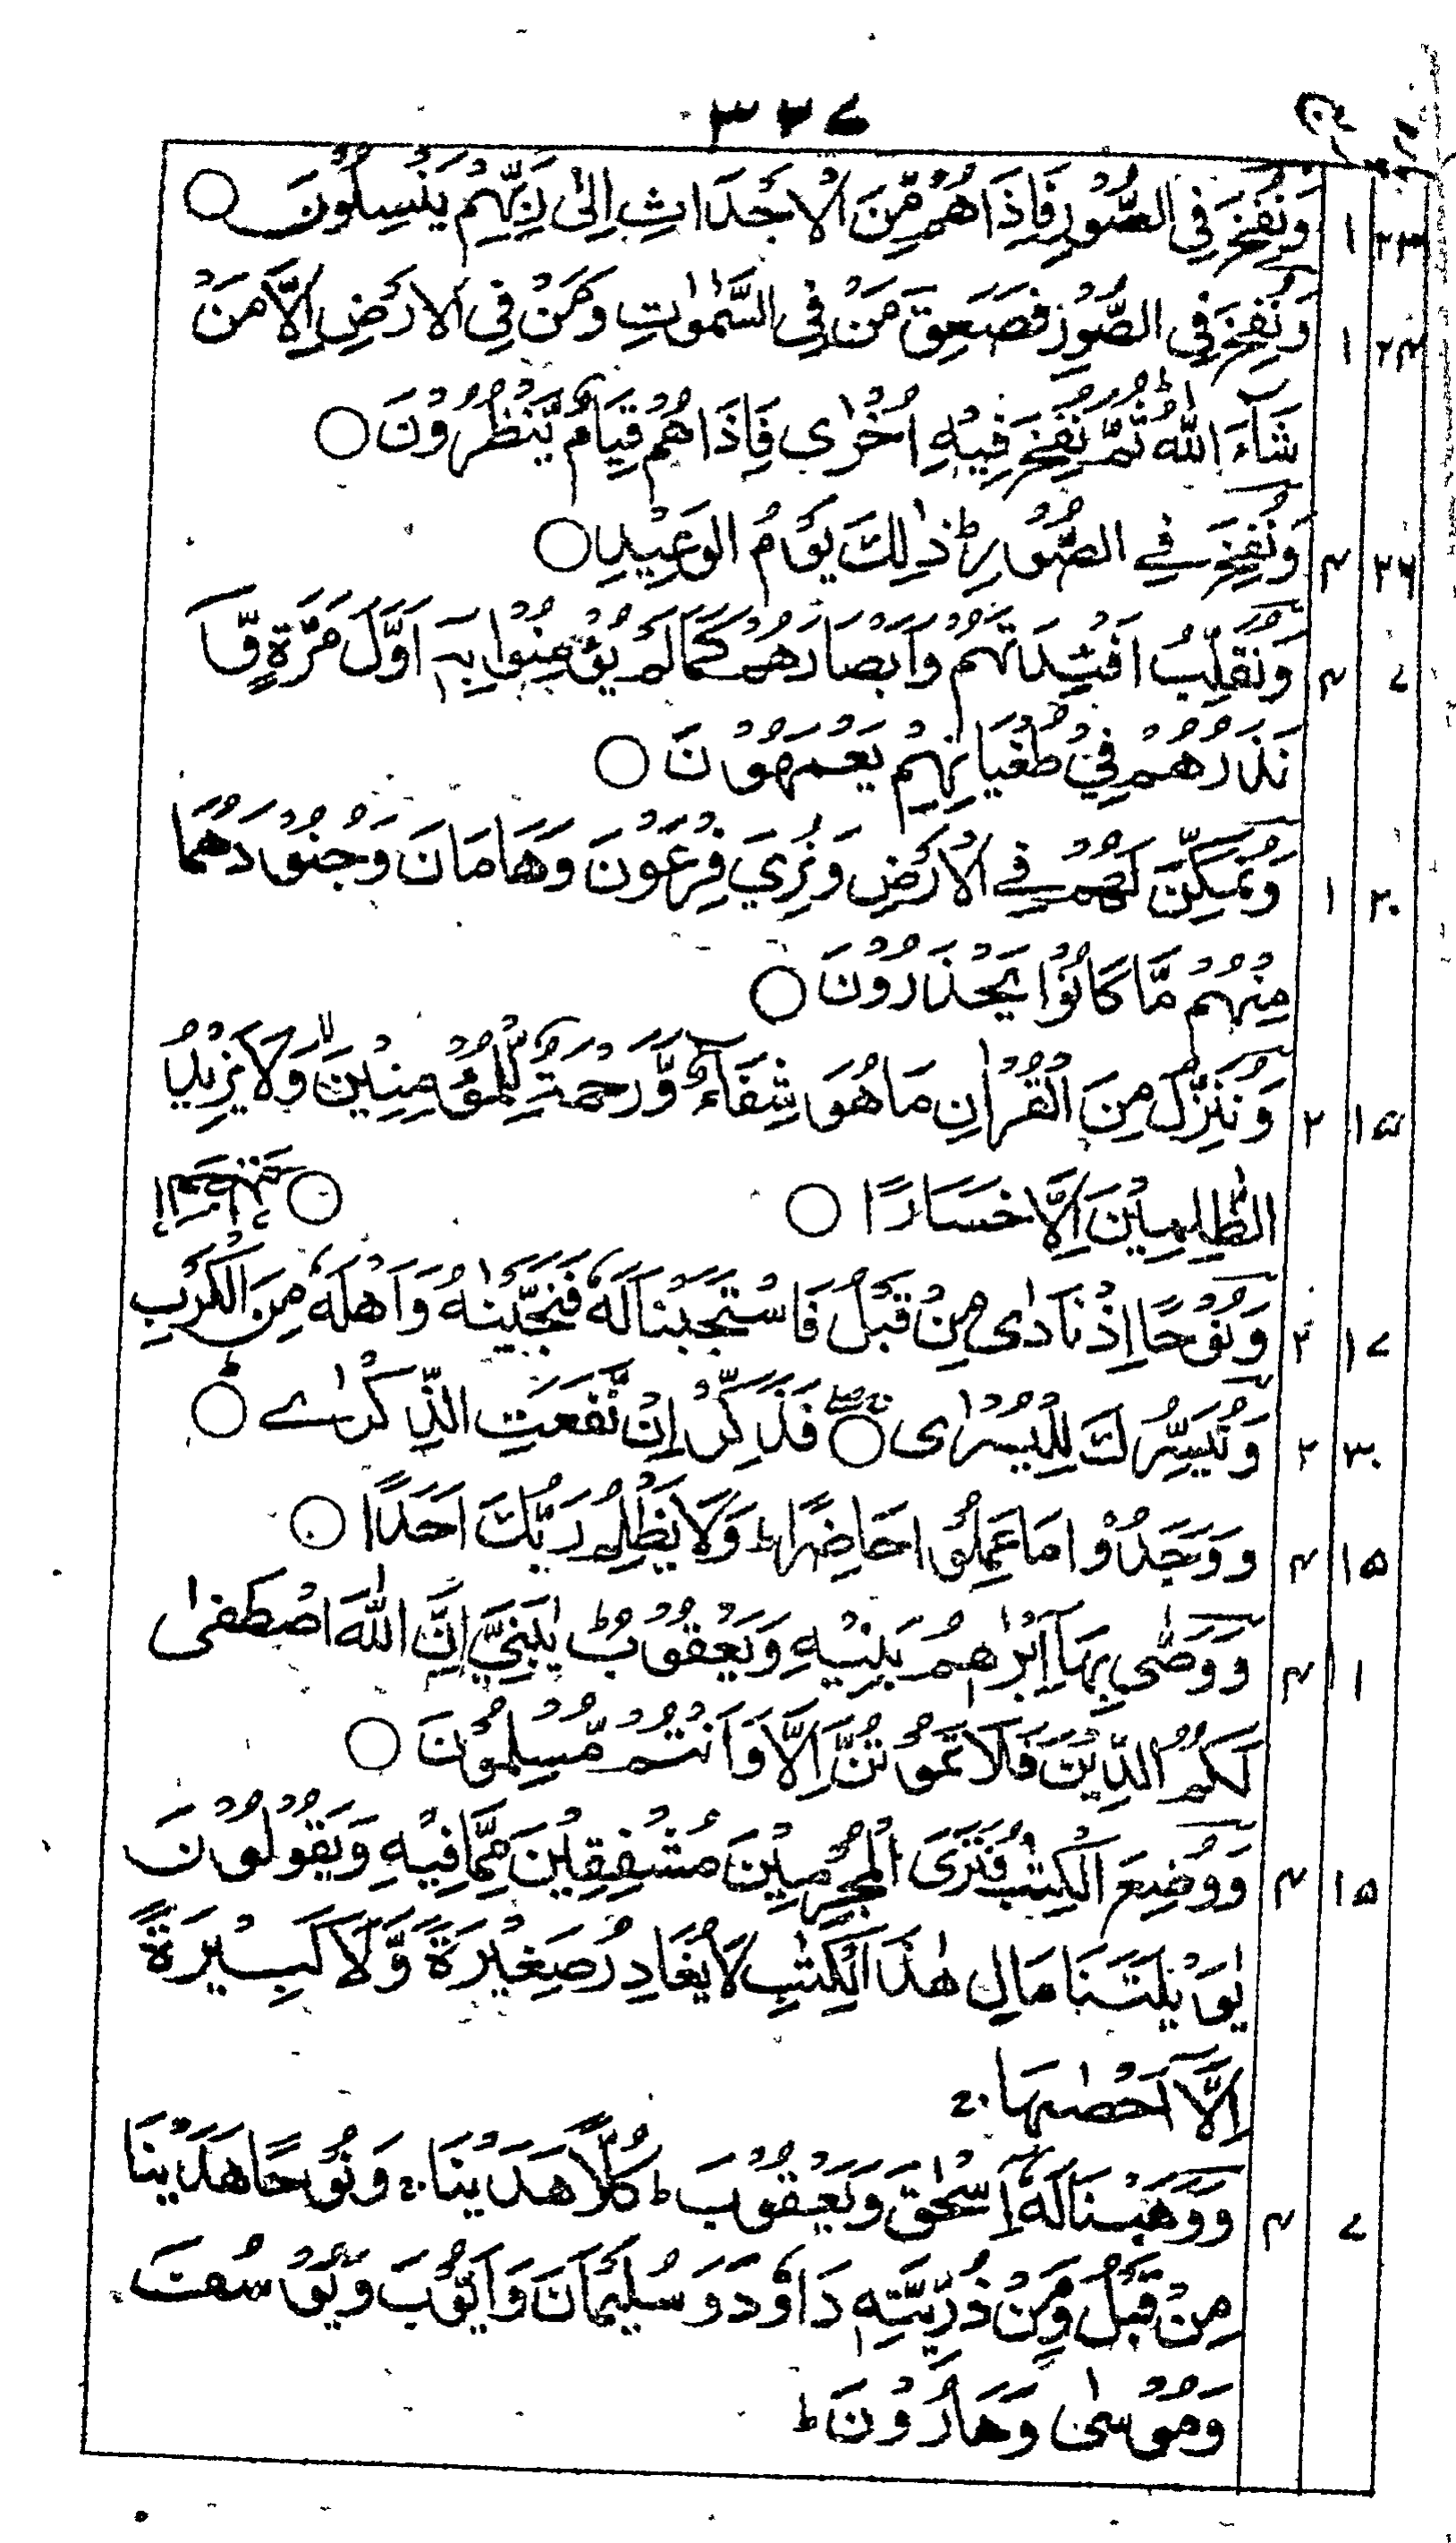 ۳۲۷
۲۳ ۱ وَنُفِخَ فِي الصُّوْرِ فَاِذَا هُمْ مِّنَ الْاَجْدَاثِ اِلٰى رَبِّهِمْ يَنْسِلُوْنَ ○
۲۴ ۱ وَنُفِخَ فِي الصُّوْرِ فَصَعِقَ مَنْ فِي السَّمٰوٰتِ وَمَنْ فِي الْاَرْضِ اِلَّا مَنْ
شَآءَ اللّٰهُ ؕ ثُمَّ نُفِخَ فِيْهِ اُخْرٰى فَاِذَا هُمْ قِيَامٌ يَّنْظُرُوْنَ ○
۲۶ ۴ وَنُفِخَ فِي الصُّوْرِ ؕ ذٰلِكَ يَوْمُ الْوَعِيْدِ ○
۷ ۴ وَنُقَلِّبُ اَفْئِدَتَهُمْ وَاَبْصَارَهُمْ كَمَا لَمْ يُؤْمِنُوْا بِهٖ اَوَّلَ مَرَّةٍ وَّ
نَذَرُهُمْ فِيْ طُغْيَانِهِمْ يَعْمَهُوْنَ ○
۲۰ ۱ وَنُمَكِّنَ لَهُمْ فِي الْاَرْضِ وَنُرِيَ فِرْعَوْنَ وَهَامَانَ وَجُنُوْدَهُمَا
مِنْهُمْ مَّا كَانُوْا يَحْذَرُوْنَ ○
۱۵ ۲ وَنُنَزِّلُ مِنَ الْقُرْاٰنِ مَا هُوَ شِفَآءٌ وَّرَحْمَةٌ لِّلْمُؤْمِنِيْنَ ۙ وَلَا يَزِيْدُ
الظّٰلِمِيْنَ اِلَّا خَسَارًا ○ ○
۱۷ ۲ وَنُوْحًا اِذْ نَادٰى مِنْ قَبْلُ فَاسْتَجَبْنَا لَهٗ فَنَجَّيْنٰهُ وَاَهْلَهٗ مِنَ الْكَرْبِ
۳۰ ۲ وَنُيَسِّرُكَ لِلْيُسْرٰى ○ فَذَكِّرْ اِنْ نَّفَعَتِ الذِّكْرٰى ○
۱۵ ۴ وَوَجَدُوْا مَا عَمِلُوْا حَاضِرًا ؕ وَلَا يَظْلِمُ رَبُّكَ اَحَدًا ○
۱ ۴ وَوَصّٰى بِهَآ اِبْرٰهٖمُ بَنِيْهِ وَيَعْقُوْبُ ؕ يٰبَنِيَّ اِنَّ اللّٰهَ اصْطَفٰى
لَكُمُ الدِّيْنَ فَلَا تَمُوْتُنَّ اِلَّا وَاَنْتُمْ مُّسْلِمُوْنَ ○
۱۵ ۴ وَوُضِعَ الْكِتٰبُ فَتَرَى الْمُجْرِمِيْنَ مُشْفِقِيْنَ مِمَّا فِيْهِ وَيَقُوْلُوْنَ
يٰوَيْلَتَنَا مَالِ هٰذَا الْكِتٰبِ لَا يُغَادِرُ صَغِيْرَةً وَّلَا كَبِيْرَةً
اِلَّآ اَحْصٰىهَا ۚ
۷ ۴ وَوَهَبْنَا لَهٗٓ اِسْحٰقَ وَيَعْقُوْبَ ؕ كُلًّا هَدَيْنَا ۚ وَنُوْحًا هَدَيْنَا
مِنْ قَبْلُ وَمِنْ ذُرِّيَّتِهٖ دَاوٗدَ وَسُلَيْمَانَ وَاَيُّوْبَ وَيُوْسُفَ
وَمُوْسٰى وَهَارُوْنَ ؕ